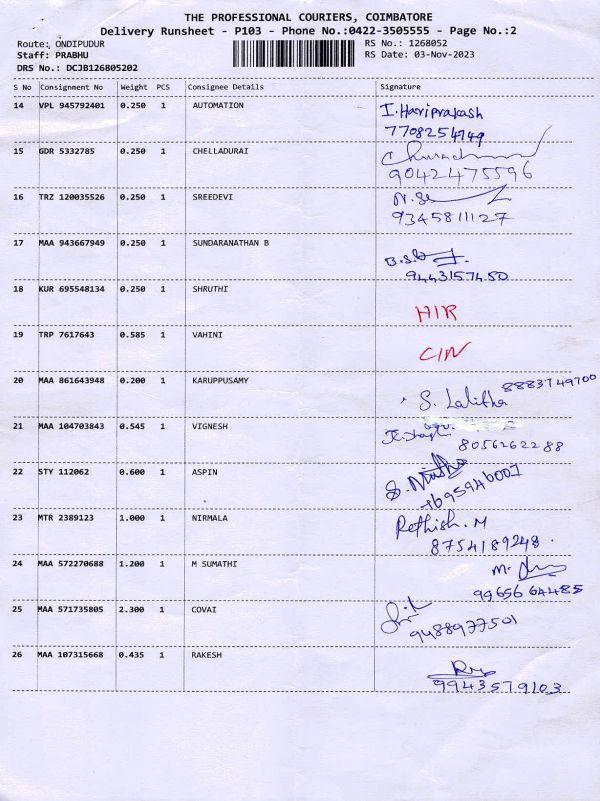 THE PROFESSIONAL COURIERS, COIMBATORE
Delivery Runsheet - P103 - Phone No.:0422-3505555 - Page No.:2
Route: ONDIPUDUR RS No.: 1268052
Staff: PRABHU RS Date: 03-Nov-2023
DRS No.: DCJB126805202
S No Consignment No Weight PCS Consignee Details Signature
14 VPL 945792401 0.250 1 AUTOMATION I. Hariprakash
7708254749
15 GDR 5332785 0.250 1 CHELLADURAI
90424 75596
16 TRZ 120035526 0.250 1 SREEDEVI
9345811127
17 MAA 943667949 0.250 1 SUNDARANATHAN B
9443157450
18 KUR 695548134 0.250 1 SHRUTHI HIR
19 TRP 7617643 0.585 1 VAHINI CIN
20 MAA 861643948 0.200 1 KARUPPUSAMY S. Lalitha 8883749700
21 MAA 104703843 0.545 1 VIGNESH
8056262288
22 STY 112062 0.600 1 ASPIN
7695946007
23 MTR 2389123 1.000 1 NIRMALA Rethish. M
8754189248.
24 MAA 572270688 1.200 1 M SUMATHI
99656 64485
25 MAA 571735805 2.300 1 COVAI
9488977501
26 MAA 107315668 0.435 1 RAKESH
9943579103